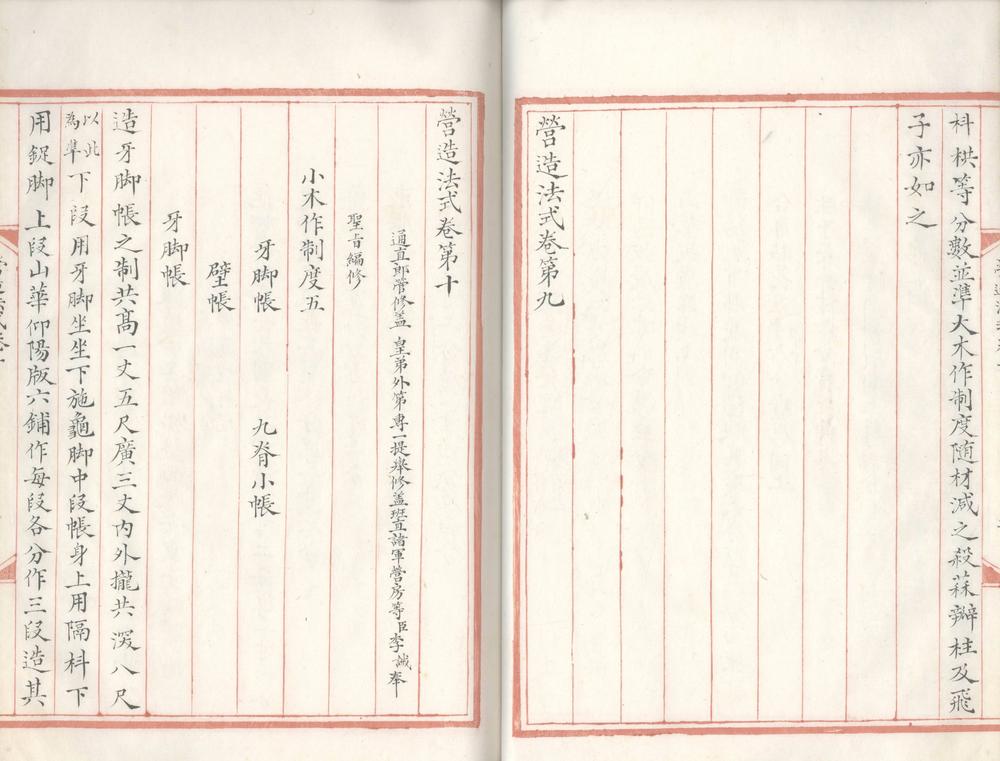 科栱等分數並準大木作制度随材減之殺蒜瓣柱及飛
子亦如之
營造法式卷第九
營造法式卷第十
通直郎管修蓋 皇弟外第專一提舉修蓋班直諸軍營房等臣李誡奉
聖旨編修
小木作制度五
牙脚帳 九脊小帳
壁帳
牙脚帳
造牙脚帳之制共髙一丈五尺廣三丈内外攏共深八尺
以此
為準下段用牙脚坐坐下施龜脚中段帳身上用隔科下
用鋜脚上段山華仰陽版六鋪作每段各分作三段造其